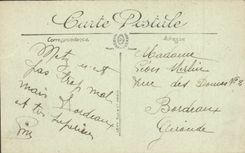 Carte Postale
Correspondance
Adresse
Metz n'est
pas trop mal
mais Bordeaux
et toi supérieur
Madame
Léon Merlin
rue des Douves n° 2
Bordeaux
Gironde